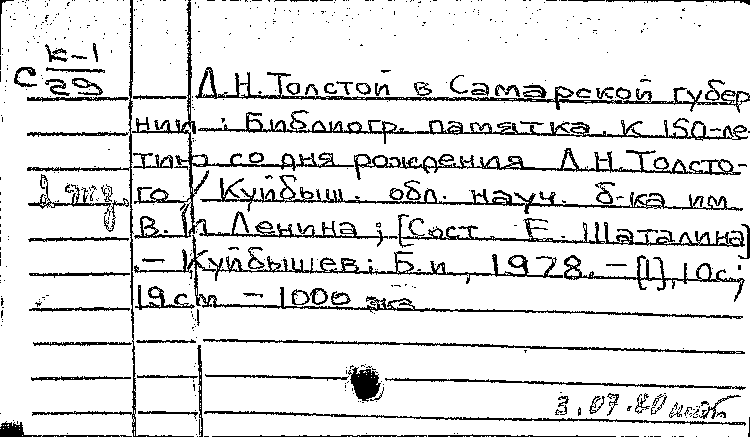 К-1
С 29
Л.Н.Толстой в Самарской губер
нии : Библиогр. памятка. К 150-ле-
тию со дня рождения Л.Н.Толсто-
2 экз. го / Куйбыш. обл. науч. б-ка им
В. И Ленина ; [Сост. Е. Шаталина]
.— Куйбышев: Б.и, 1978. — [1], 10с;
19см — 1000 экз
3.07.80